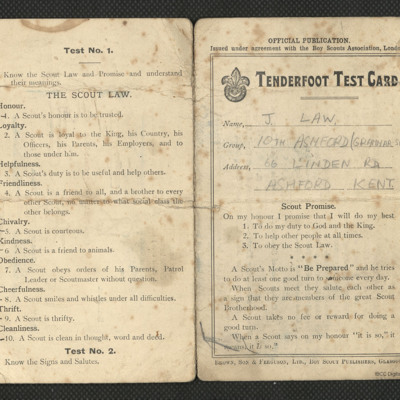 Test No. 1.
Know the Scout Law and Promise and understand
their meanings.
THE SCOUT LAW.
Honour.
1. A Scout's honour is to be trusted.
Loyalty.
2. A Scout is loyal to the King, his Country, his
Officers, his Parents, his Employers, and to
those under him.
Helpfulness.
3. A Scout's duty is to be useful and help others.
Friendliness.
4. A Scout is a friend to all, and a brother to every
other Scout, no matter to what social class the
other belongs.
Chivalry.
5. A Scout is courteous.
Kindness.
6. A Scout is a friend to animals.
Obedience.
7. A Scout obeys orders of his Parents, Patrol
Leader or Scoutmaster without question.
Cheerfulness.
8. A Scout smiles and whistles under all difficulties.
Thrift.
9. A Scout is thrifty.
Cleanliness.
10. A Scout is clean in thought, word and deed.
Test No. 2.
Know the Signs and Salutes.
OFFICIAL PUBLICATION.
Issued under agreement with the Boy Scouts Association, Lond
TENDERFOOT TEST CARD
Name, J LAW.
Group, 10TH ASHFORD
Address, 66 LYNDEN RD
ASHFORD KENT
Scout Promise.
On my honour I promise that I will do my best
1. To do my duty to God and the King.
2. To help other people at all times.
3. To obey the Scout Law.
* * * *
A Scout's Motto is "Be Prepared" and he tries
to do at least one good turn to someone every day.
When Scouts meet they salute each other as
a sign that they are members of the great Scout
Brotherhood.
A Scout takes no fee or reward for doing a
good turn.
When a Scout says on my honour "it is so," it
means it is so."
BROWN, SON & FERGUSON, LTD., BOY SCOUT PUBLISHERS, GLASGO